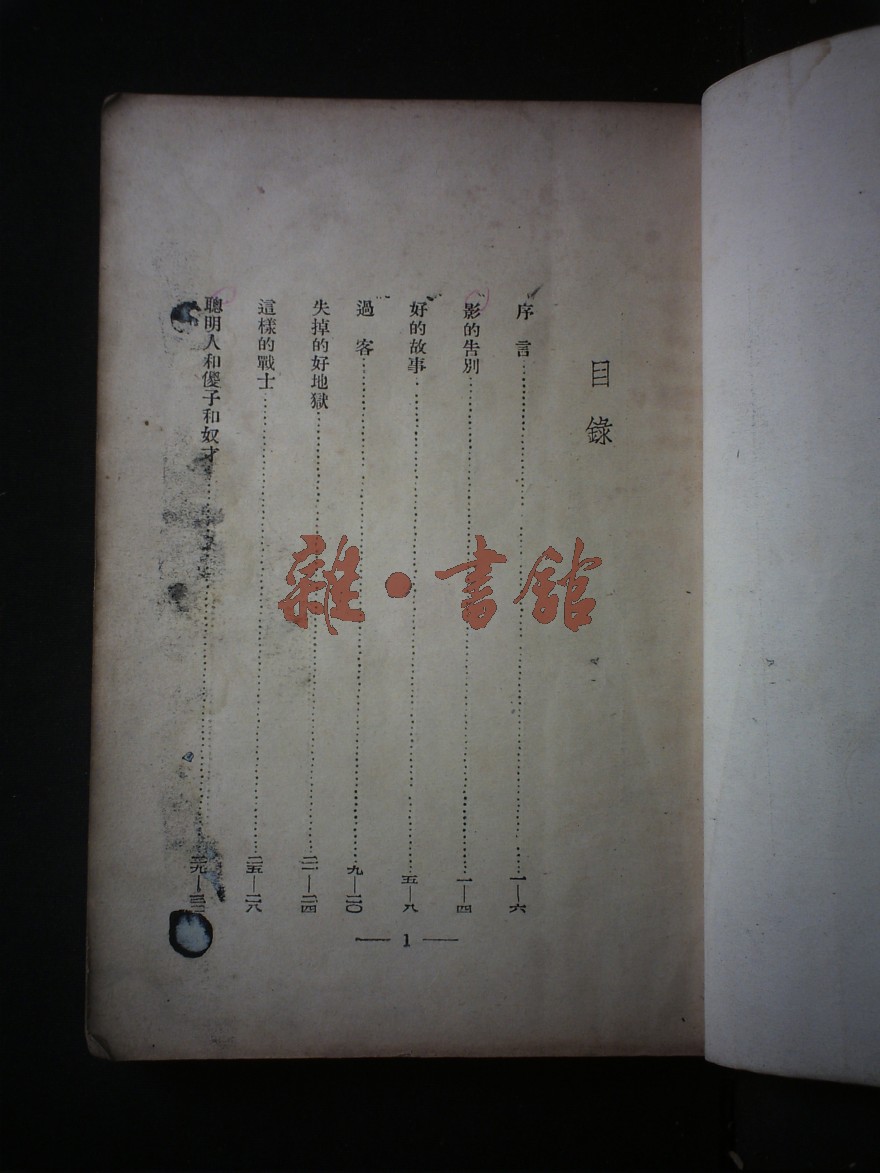 目錄
序言……一—六
影的告別……一—四
好的故事……五—八
過客……九—二〇
失掉的好地獄……二一—二四
這樣的戰士……二五—二八
聰明人和傻子和奴才……二九—
— 1 —
雜·書館